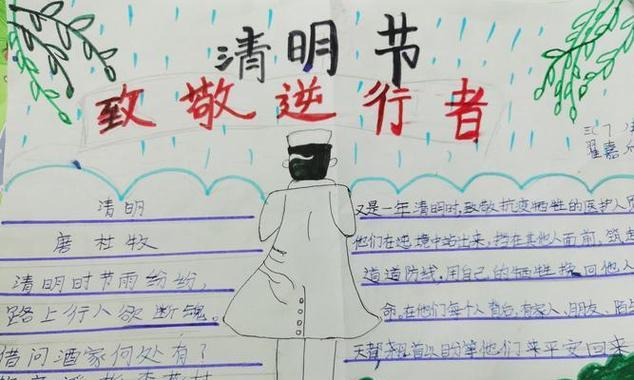 清明节
致敬逆行者
三(7)
翟嘉
清明
唐杜牧
清明时节雨纷纷,
路上行人欲断魂。
借问酒家何处有?
又是一年清明时,致敬抗疫牺牲的医护人
他们在逆境中站出来,挡在其他人面前,筑起
道道防线,用自己的牺牲换回他人
命,在他们每个人背后,有家人、朋友、
天都翘首以盼等他们来平安回来